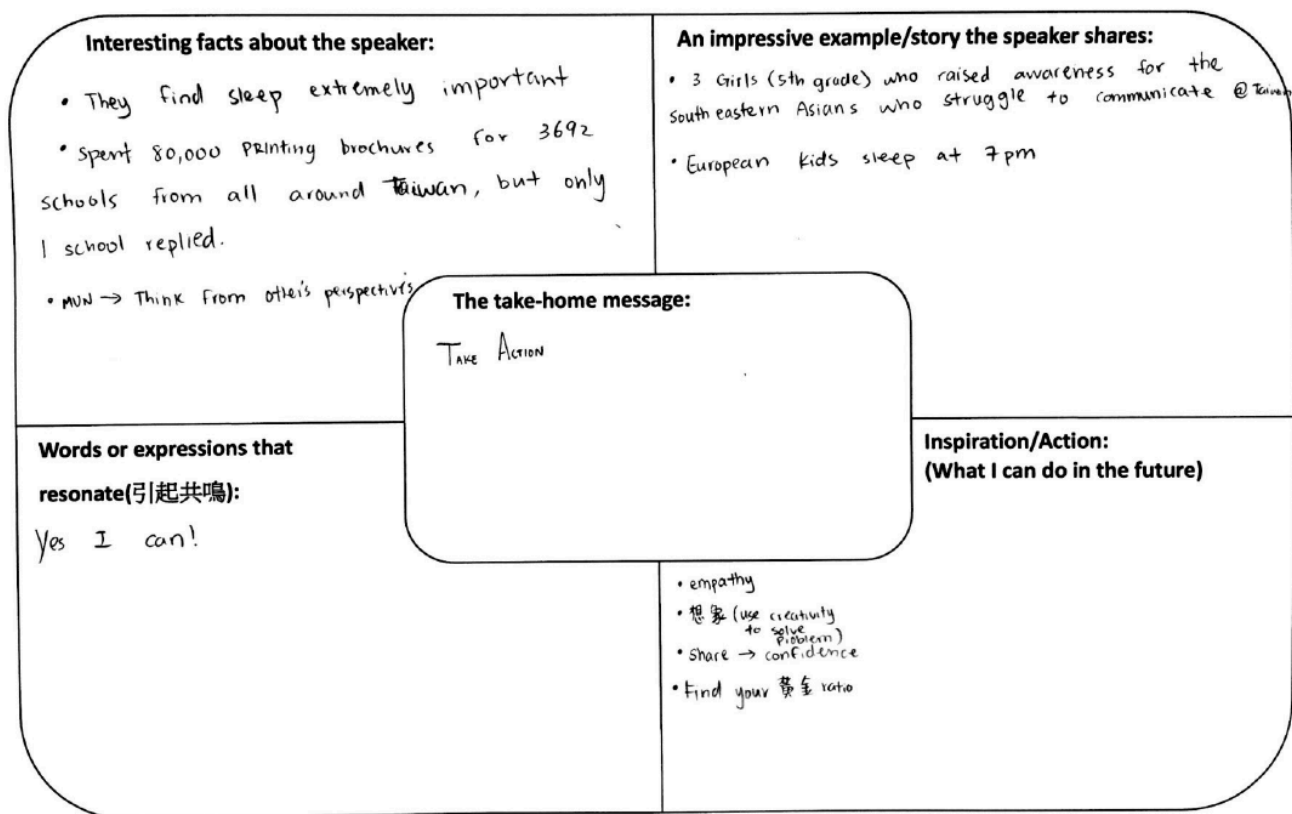 Interesting facts about the speaker:
• They find sleep extremely important
• Spent 80,000 PRINTING brochures for 3692
schools from all around Taiwan, but only
1 school replied.
• MUN → Think from other's perspectives
An impressive example/story the speaker shares:
• 3 Girls (5th grade) who raised awareness for the
South eastern Asians who struggle to communicate @ Taiwan
• European kids sleep at 7pm
The take-home message:
TAKE ACTION
Words or expressions that
resonate(引起共鳴):
Yes I can!
Inspiration/Action:
(What I can do in the future)
• empathy
• 想象 (use creativity
to solve
problem)
• share → confidence
• Find your 黃金 ratio